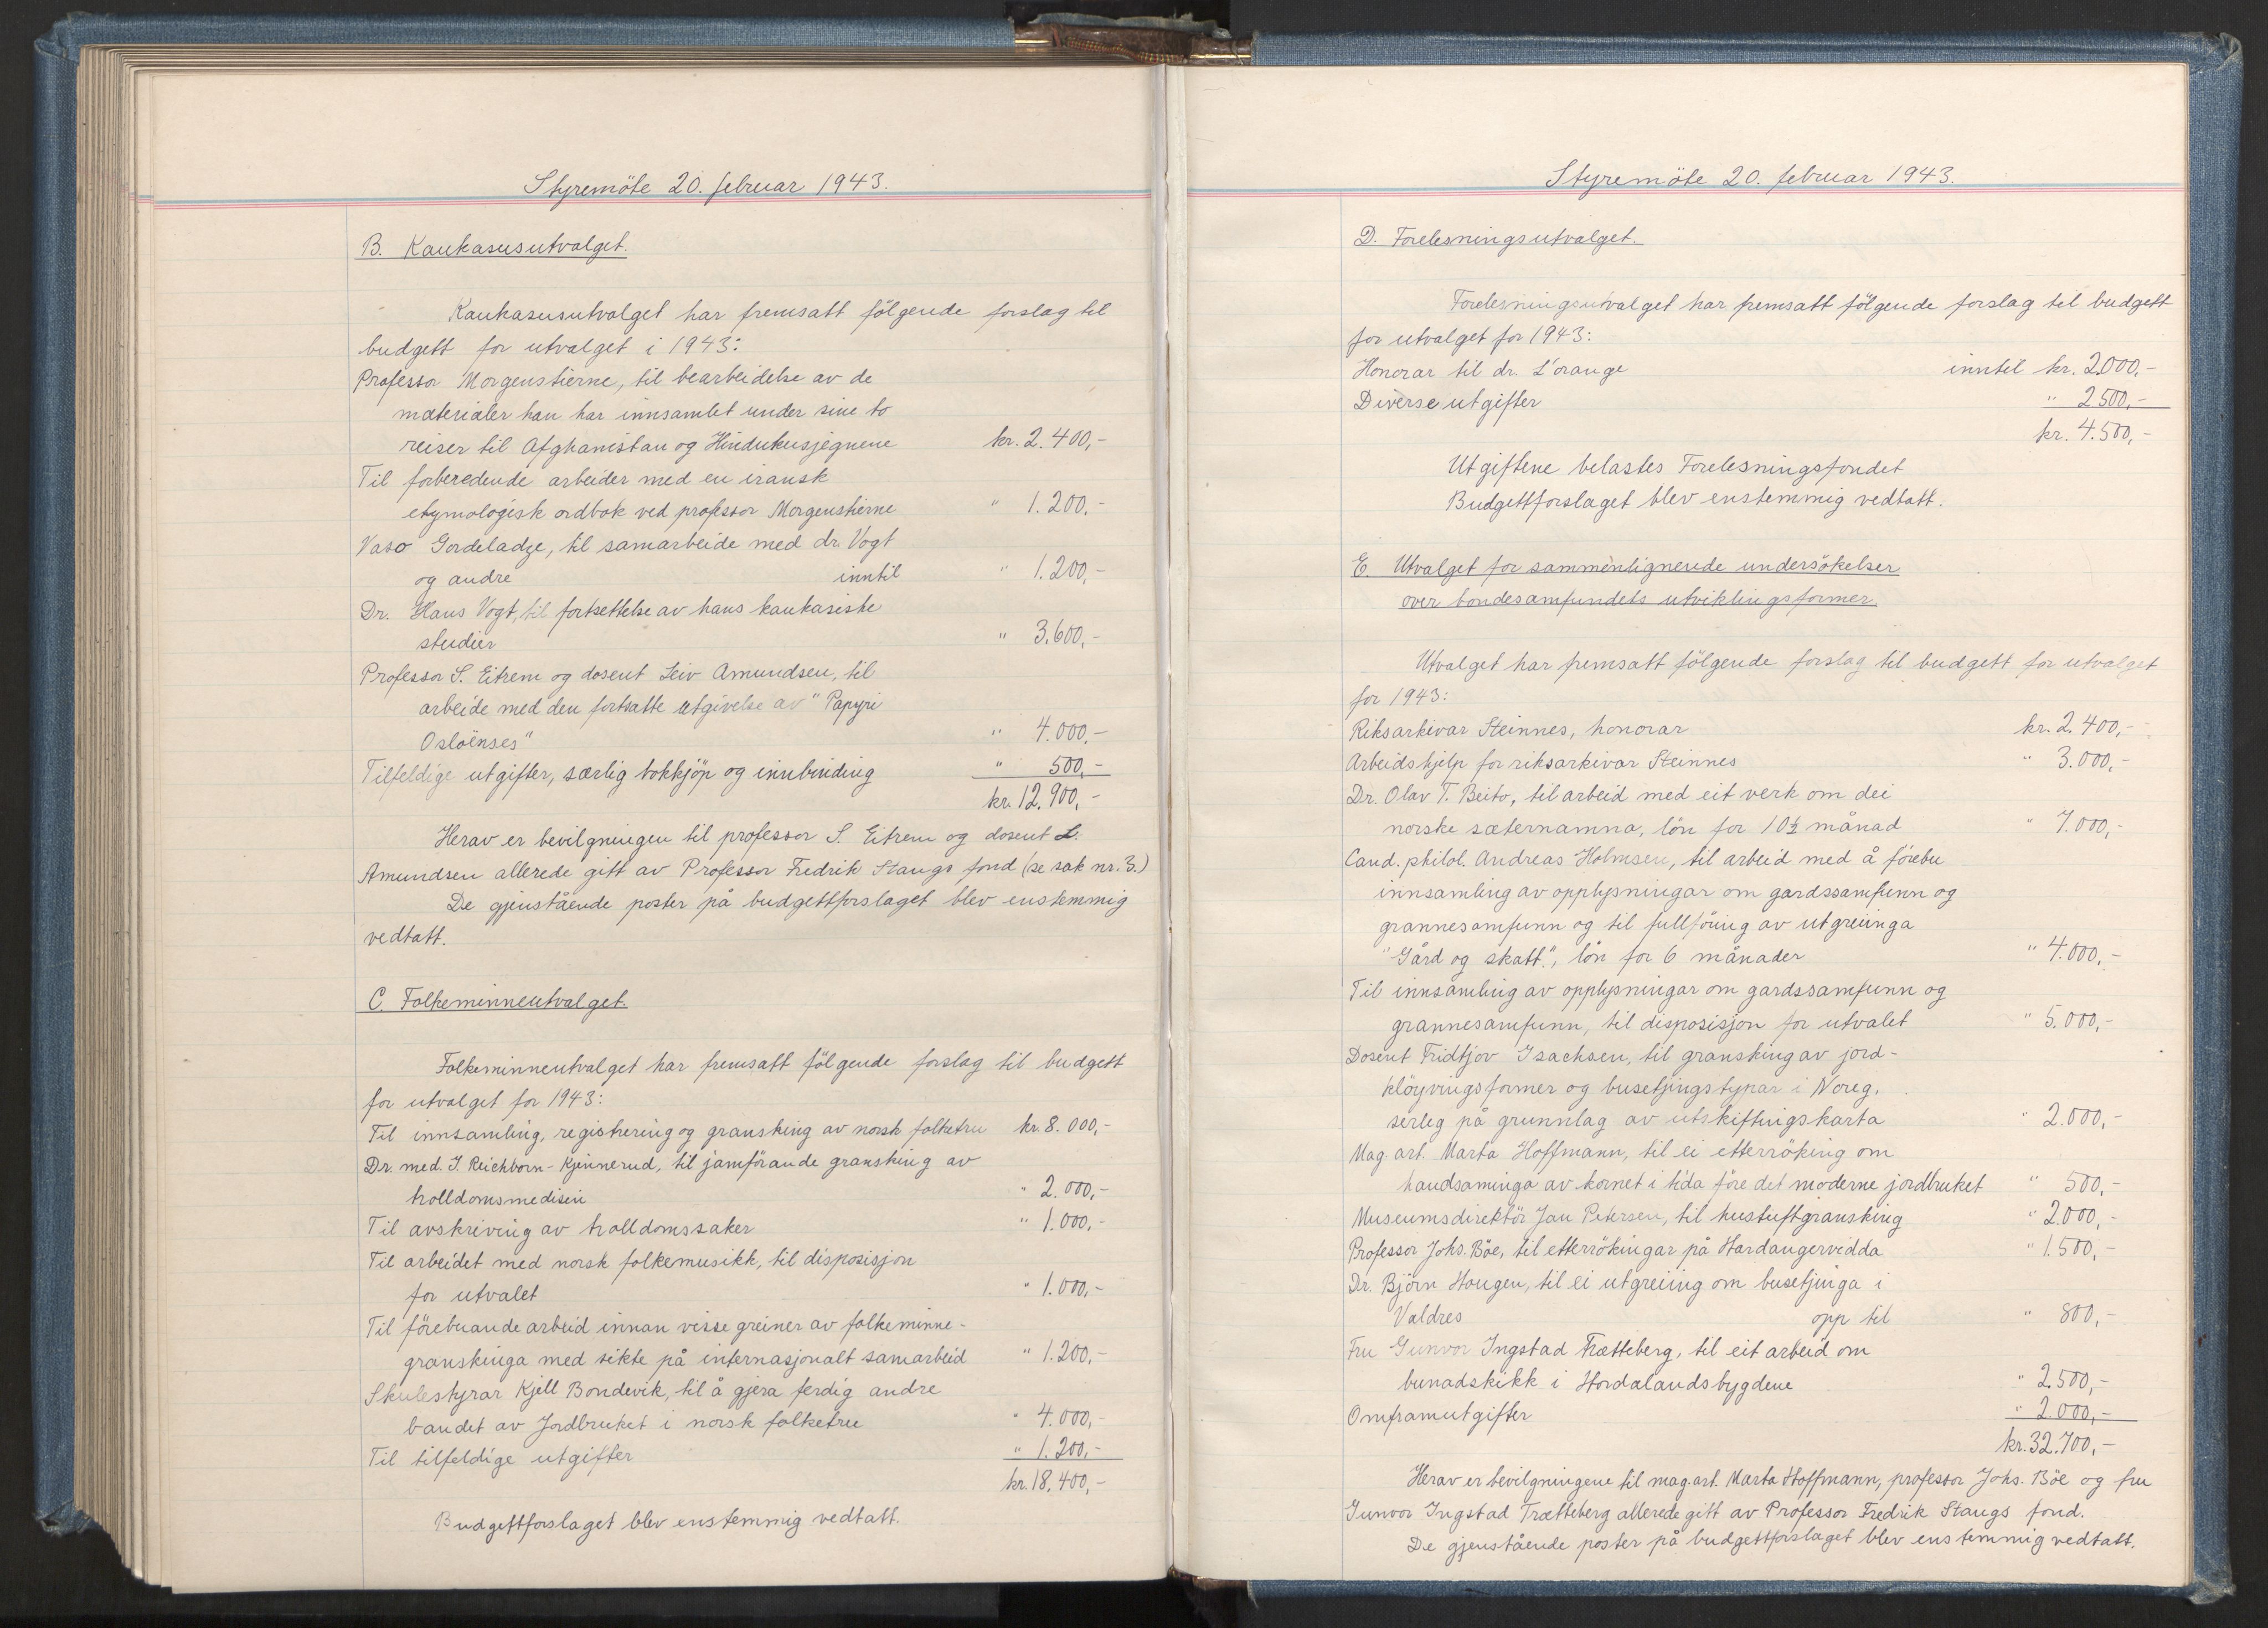 Styremöte 20. februar 1943.
B. Kaukasusutvalget.
Kaukasusutvalget har fremsatt fölgende forslag til
budgett for utvalget i 1943:
Professor Morgenstierne, til bearbeidelse av de
materialer han har innsamlet under sine to
reiser til Afghanistan og Hindukusjegnene kr. 2.400,-
Til forberedende arbeider med en iransk
etymologisk ordbok ved professor Morgenstierne " 1.200,-
Vaso Gordeladze, til samarbeide med dr. Vogt
og andre inntil " 1.200,-
Dr. Hans Vogt, til fortsettelse av hans kaukasiske
studier " 3.600,-
Professor S. Eitrem og dosent Leiv Amundsen, til
arbeide med den fortsatte utgivelse av "Papyri
Osloënses" " 4.000,-
Tilfeldige utgifter, særlig bokkjöp og innbinding " 500,-
kr. 12.900,-
Herav er bevilgningen til professor S. Eitrem og dosent L.
Amundsen allerede gitt av Professor Fredrik Stangs fond (se sak nr. 3.)
De gjenstående poster på budgettforslaget blev enstemmig
vedtatt.
C. Folkeminneutvalget.
Folkeminneutvalget har fremsatt fölgende forslag til budgett
for utvalget for 1943:
Til innsamling, registrering og gransking av norsk folketru kr. 8.000,-
Dr. med. I. Reichborn-Kjennerud, til jamförande gransking av
trolldomsmedisin " 2.000,-
Til avskriving av trolldomssaker " 1.000,-
Til arbeidet med norsk folkemusikk, til disposisjon
for utvalet " 1.000,-
Til förebuande arbeid innan visse greiner av folkeminne-
granskinga med sikte på internasjonalt samarbeid " 1.200,-
Skulestyrar Kjell Bondevik, til å gjera ferdig andre
bandet av Jordbruket i norsk folketru " 4.000,-
Til tilfeldige utgifter " 1.200,-
kr. 18.400,-
Budgettforslaget blev enstemmig vedtatt.
Styremöte 20. februar 1943.
D. Forelesningsutvalget.
Forelesningsutvalget har fremsatt fölgende forslag til budgett
for utvalget for 1943:
Honorar til dr. L'orange inntil kr. 2.000,-
Diverse utgifter " 2500,-
kr. 4.500,-
Utgiftene belastes Forelesningsfondet
Budgettforslaget blev enstemmig vedtatt.
E. Utvalget for sammenlignende undersökelser
over bondesamfundets utviklingsformer.
Utvalget har fremsatt fölgende forslag til budgett for utvalget
for 1943:
Riksarkivar Steinnes, honorar kr. 2.400,-
Arbeidshjelp for riksarkivar Steinnes " 3.000,-
Dr. Olav T. Beito, til arbeid med eit verk om dei
norske sæternamna, lön for 10½ månad " 7.000,-
Cand. philol. Andreas Holmsen, til arbeid med å förebu
innsamling av opplysningar om gardssamfunn og
grannesamfunn og til fullföring av utgreiinga
"Gård og skatt", lön for 6 månader " 4.000,-
Til innsamling av opplysningar om gardssamfunn og
grannesamfunn, til disposisjon for utvalet " 5.000,-
Dosent Fridtjov Isachsen, til gransking av jord-
klöyvingsformer og busetjingstypar i Noreg,
serleg på grunnlag av utskiftingskarta " 2.000,-
Mag. art. Marta Hoffmann, til ei etterröking om
handsaminga av kornet i tida före det moderne jordbruket " 500,-
Museumsdirektör Jan Petersen, til hustuftgransking " 2.000,-
Professor Johs. Böe, til etterrökingar på Hardangervidda " 1.500,-
Dr. Björn Hougen, til ei utgreiing om busetjinga i
Valdres opp til " 800,-
Fru Gunvor Ingstad Trætteberg, til eit arbeid om
bunadskikk i Hordalandsbygdene " 2.500,-
Omframutgifter " 2.000,-
kr. 32.700,-
Herav er bevilgningene til mag. art. Marta Hoffmann, professor Johs. Böe og fru
Gunvor Ingstad Trætteberg allerede gitt av Professor Fredrik Stangs fond.
De gjenstående poster på budgettforslaget blev enstemmig vedtatt.